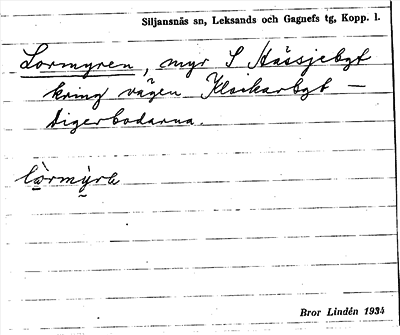 Siljansnäs sn, Leksands och Gagnefs tg, Kopp. l.
Lormyren, myr S Hässjebgt
kring vägen Klockarbgt –
Digerbodarna.
lòrmỳra
Bror Lindén 1934